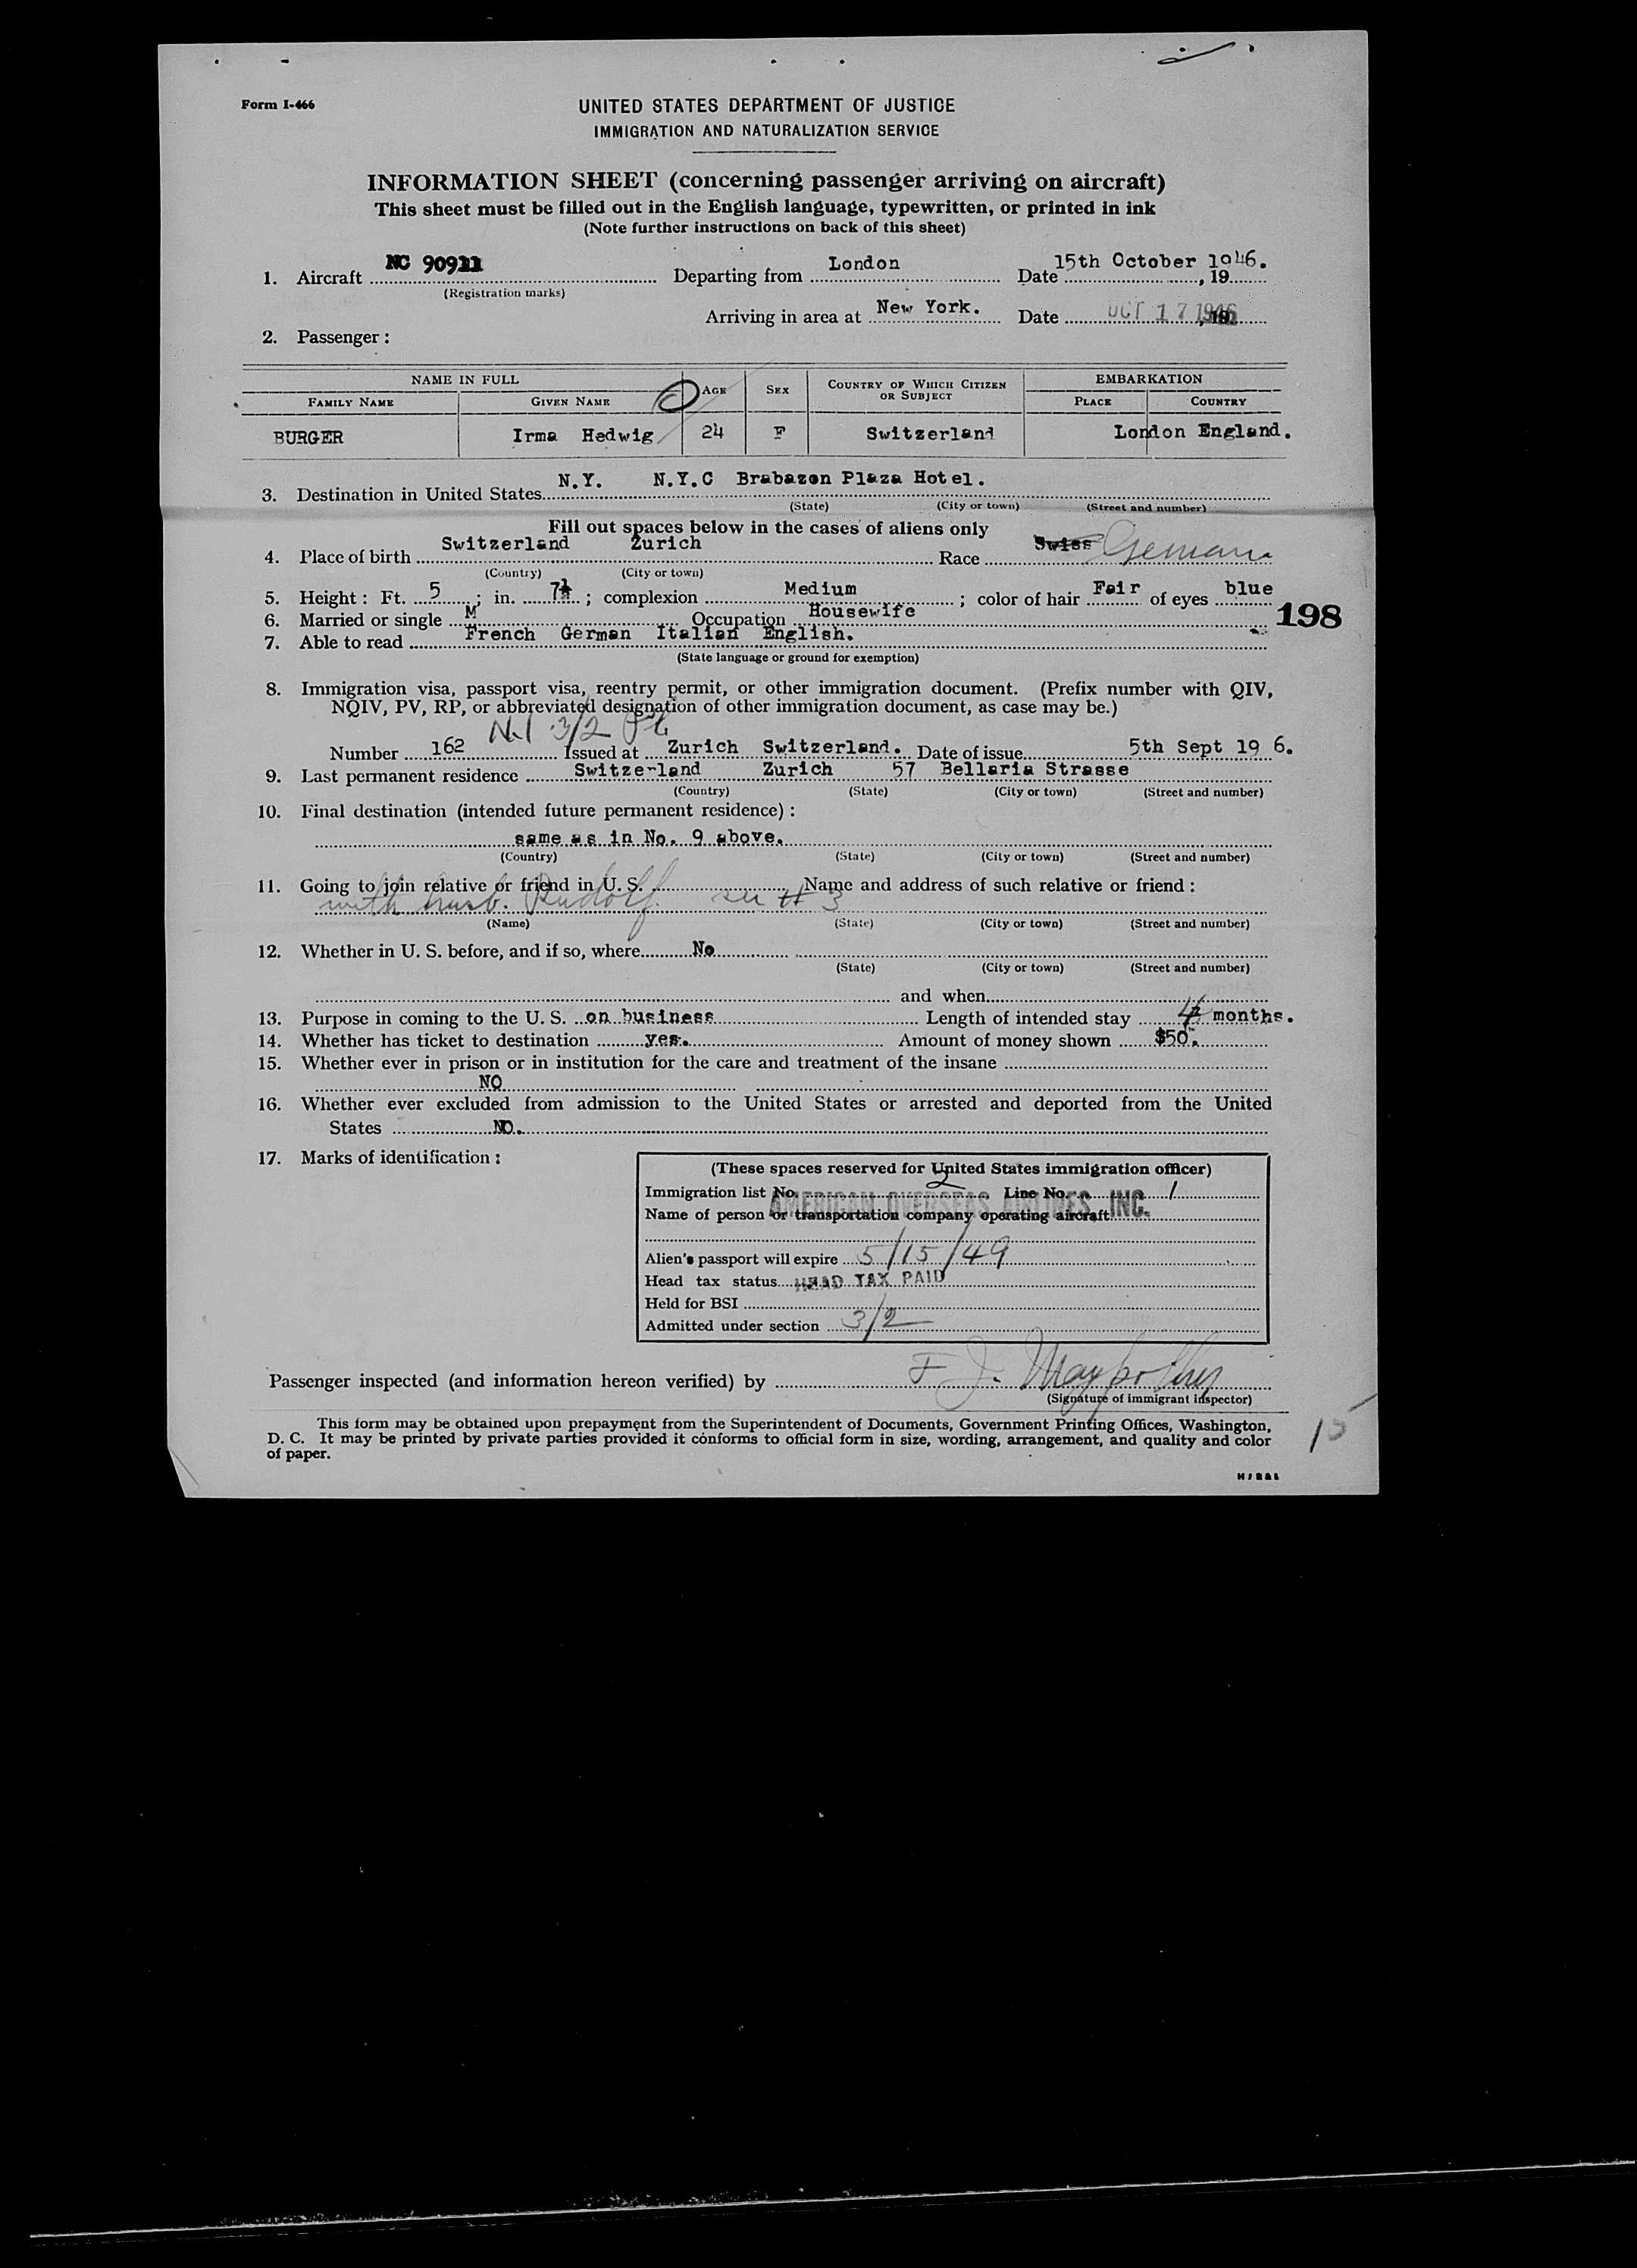 Form I-466
UNITED STATES DEPARTMENT OF JUSTICE
IMMIGRATION AND NATURALIZATION SERVICE
INFORMATION SHEET (concerning passenger arriving on aircraft)
This sheet must be filled out in the English language, typewritten, or printed in ink
(Note further instructions on back of this sheet)
1. Aircraft NC 90911 Departing from London Date 15th October 1946., 19
(Registration marks)
Arriving in area at New York. Date OCT 17 1946
2. Passenger:
NAME IN FULL AGE SEX COUNTRY OF WHICH CITIZEN OR SUBJECT EMBARKATION
FAMILY NAME GIVEN NAME PLACE COUNTRY
BURGER Irma Hedwig 24 F Switzerland London England.
3. Destination in United States N.Y. N.Y.C Brabazon Plaza Hotel.
(State) (City or town) (Street and number)
Fill out spaces below in the cases of aliens only
4. Place of birth Switzerland Zurich Race Swiss German
(Country) (City or town)
5. Height: Ft. 5; in. 7½; complexion Medium; color of hair Fair of eyes blue
6. Married or single M Occupation Housewife
198
7. Able to read French German Italian English.
(State language or ground for exemption)
8. Immigration visa, passport visa, reentry permit, or other immigration document. (Prefix number with QIV,
NQIV, PV, RP, or abbreviated designation of other immigration document, as case may be.)
3/2
Number 162 Issued at Zurich Switzerland. Date of issue 5th Sept 19 6.
9. Last permanent residence Switzerland Zurich 57 Bellaria Strasse
(Country) (State) (City or town) (Street and number)
10. Final destination (intended future permanent residence):
same as in No. 9 above.
(Country) (State) (City or town) (Street and number)
11. Going to join relative or friend in U. S. Name and address of such relative or friend:
with husb. Rudolf. see # 3
(Name) (State) (City or town) (Street and number)
12. Whether in U. S. before, and if so, where No
(State) (City or town) (Street and number)
and when
13. Purpose in coming to the U. S. on business Length of intended stay 4 months.
14. Whether has ticket to destination yes. Amount of money shown $50.
15. Whether ever in prison or in institution for the care and treatment of the insane
NO
16. Whether ever excluded from admission to the United States or arrested and deported from the United
States NO.
17. Marks of identification:
(These spaces reserved for United States immigration officer)
Immigration list No. 2 Line No. 1
AMERICAN OVERSEAS AIRLINES, INC.
Name of person or transportation company operating aircraft
Alien's passport will expire 5/15/49
Head tax status HEAD TAX PAID
Held for BSI
Admitted under section 3/2
Passenger inspected (and information hereon verified) by F J.
(Signature of immigrant inspector)
This form may be obtained upon prepayment from the Superintendent of Documents, Government Printing Offices, Washington,
D. C. It may be printed by private parties provided it conforms to official form in size, wording, arrangement, and quality and color
of paper.
15